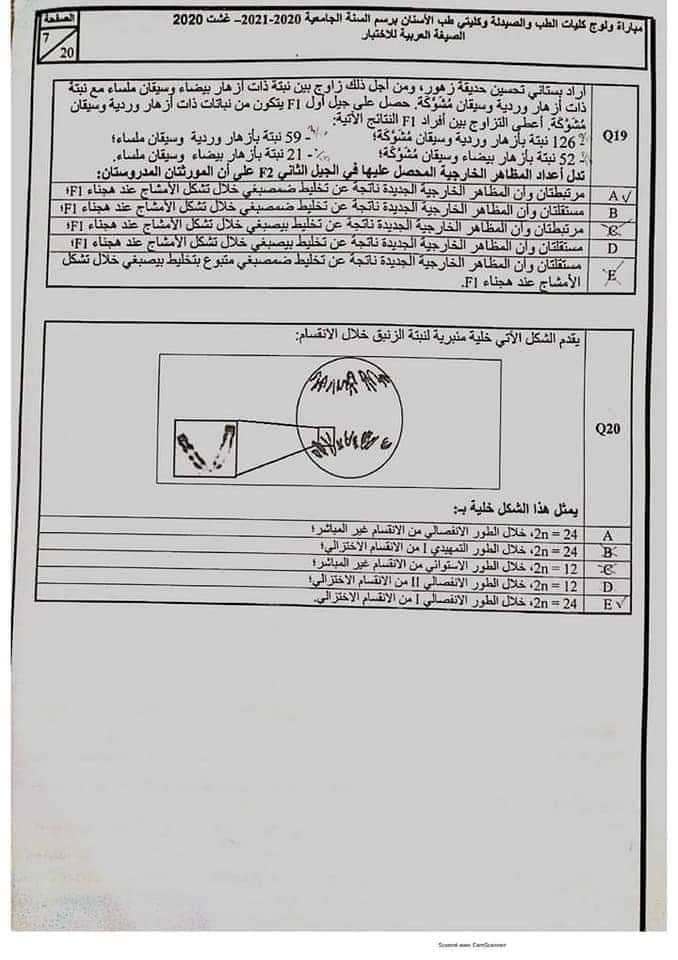 مباراة ولوج كليات الطب والصيدلة وكليتي طب الأسنان برسم السنة الجامعية 2020-2021– غشت 2020
الصيغة العربية للاختبار
الصفحة
7
20
Q19
أراد بستاني تحسين حديقة زهور، ومن أجل ذلك زاوج بين نبتة ذات أزهار بيضاء وسيقان ملساء مع نبتة
ذات أزهار وردية وسيقان مُشَوَّكَة. حصل على جيل أول F1 يتكون من نباتات ذات أزهار وردية وسيقان
مُشَوَّكَة. أعطى التزاوج بين أفراد F1 النتائج الآتية:
126 نبتة بأزهار وردية وسيقان مُشَوَّكَة؛ - 59 نبتة بأزهار وردية وسيقان ملساء؛
52 نبتة بأزهار بيضاء وسيقان مُشَوَّكَة؛ - 21 نبتة بأزهار بيضاء وسيقان ملساء.
تدل أعداد المظاهر الخارجية المحصل عليها في الجيل الثاني F2 على أن المورثتان المدروستان:
A ✓ مرتبطتان وأن المظاهر الخارجية الجديدة ناتجة عن تخليط ضمصبغي خلال تشكل الأمشاج عند هجناء F1؛
B مستقلتان وأن المظاهر الخارجية الجديدة ناتجة عن تخليط ضمصبغي خلال تشكل الأمشاج عند هجناء F1؛
C مرتبطتان وأن المظاهر الخارجية الجديدة ناتجة عن تخليط بيصبغي خلال تشكل الأمشاج عند هجناء F1؛
D مستقلتان وأن المظاهر الخارجية الجديدة ناتجة عن تخليط بيصبغي خلال تشكل الأمشاج عند هجناء F1؛
E مستقلتان وأن المظاهر الخارجية الجديدة ناتجة عن تخليط ضمصبغي متبوع بتخليط بيصبغي خلال تشكل
الأمشاج عند هجناء F1.
Q20
يقدم الشكل الآتي خلية منبرية لنبتة الزنبق خلال الانقسام:
يمثل هذا الشكل خلية بـ:
A 2n = 24، خلال الطور الانفصالي من الانقسام غير المباشر؛
B 2n = 24، خلال الطور التمهيدي I من الانقسام الاختزالي؛
C 2n = 12، خلال الطور الاستوائي من الانقسام غير المباشر؛
D 2n = 12، خلال الطور الانفصالي II من الانقسام الاختزالي؛
E ✓ 2n = 24، خلال الطور الانفصالي I من الانقسام الاختزالي.